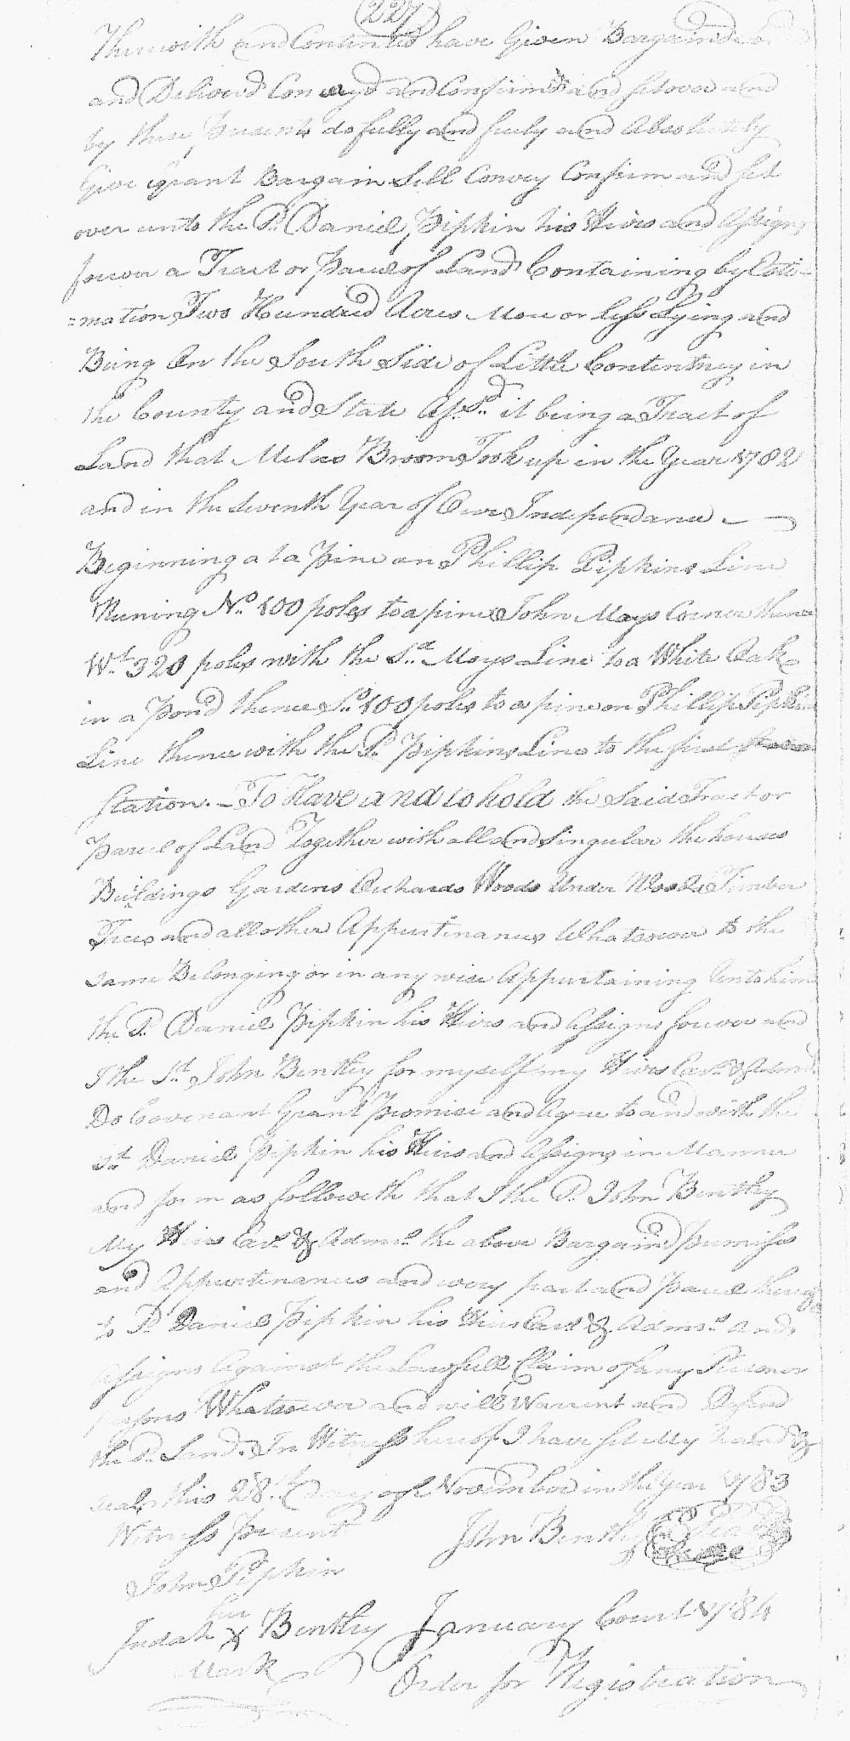 (227)
Therewith and Contented have Given Bargained
and Deliverd Conveyd and Confirmd and setover and
by these Presents do fully and freely and Absolutely
Give Grant Bargain Sell Convey Confirm and set
over unto the Sd. Daniel Pipkin his Heirs and Assigns
forever a Tract or Parcel of Land Containing by Esti-
=mation Two Hundred Acres More or Less Lying and
Being On the South Side of Little Contentney in
the County and State Afsd. it being a Tract of
Land that Miles Broom Took up in the Year 1782
and in the Seventh Year of Our Independance
Beginning at a Pine on Phillip Pipkins Line
Runing No. 100 poles to a pine John Mays Corner thence
Wt. 320 poles with the Sd. Mays Line to a White Oak
in a Pond thence So. 100 poles to a pine on Phillip Pipkin
Line thence with the Sd. Pipkins Line to the first
Station. - To Have and to hold the Said Tract or
Parcel of Land Together with all and Singular the houses
Buildings Gardens Orchards Woods Under Woods Timber
Trees and all other Appurtinances Whatsoever to the
same Belonging or in any wise Appurtaining Unto him
the Sd. Daniel Pipkin his Heirs and Assigns forever and
I the Sd. John Benthy for myself my Heirs Exrs. & Admrs.
Do Covenant Grant Promise and Agree to and with the
Sd. Daniel Pipkin his Heirs and Assigns in Manner
and form as followeth that I the Sd. John Benthy
My Heirs Exrs. & Admrs. the above Bargaind premises
and Appurtinances and every part and Parcel thereof
to Sd. Daniel Pipkin his Heirs Exrs & Admrs. and
Assigns Against the Lawfull Claim of any Person or
persons Whatsoever and will Warrent and Defend
the Sd. Land. In Witness hereof I have set My hand &
seal this 28th. Day of November in the Year 1783
Witness present John Benthy Seal
John Pipkin
her
Judah X Benthy January Court 1784
Mark Order for Registration